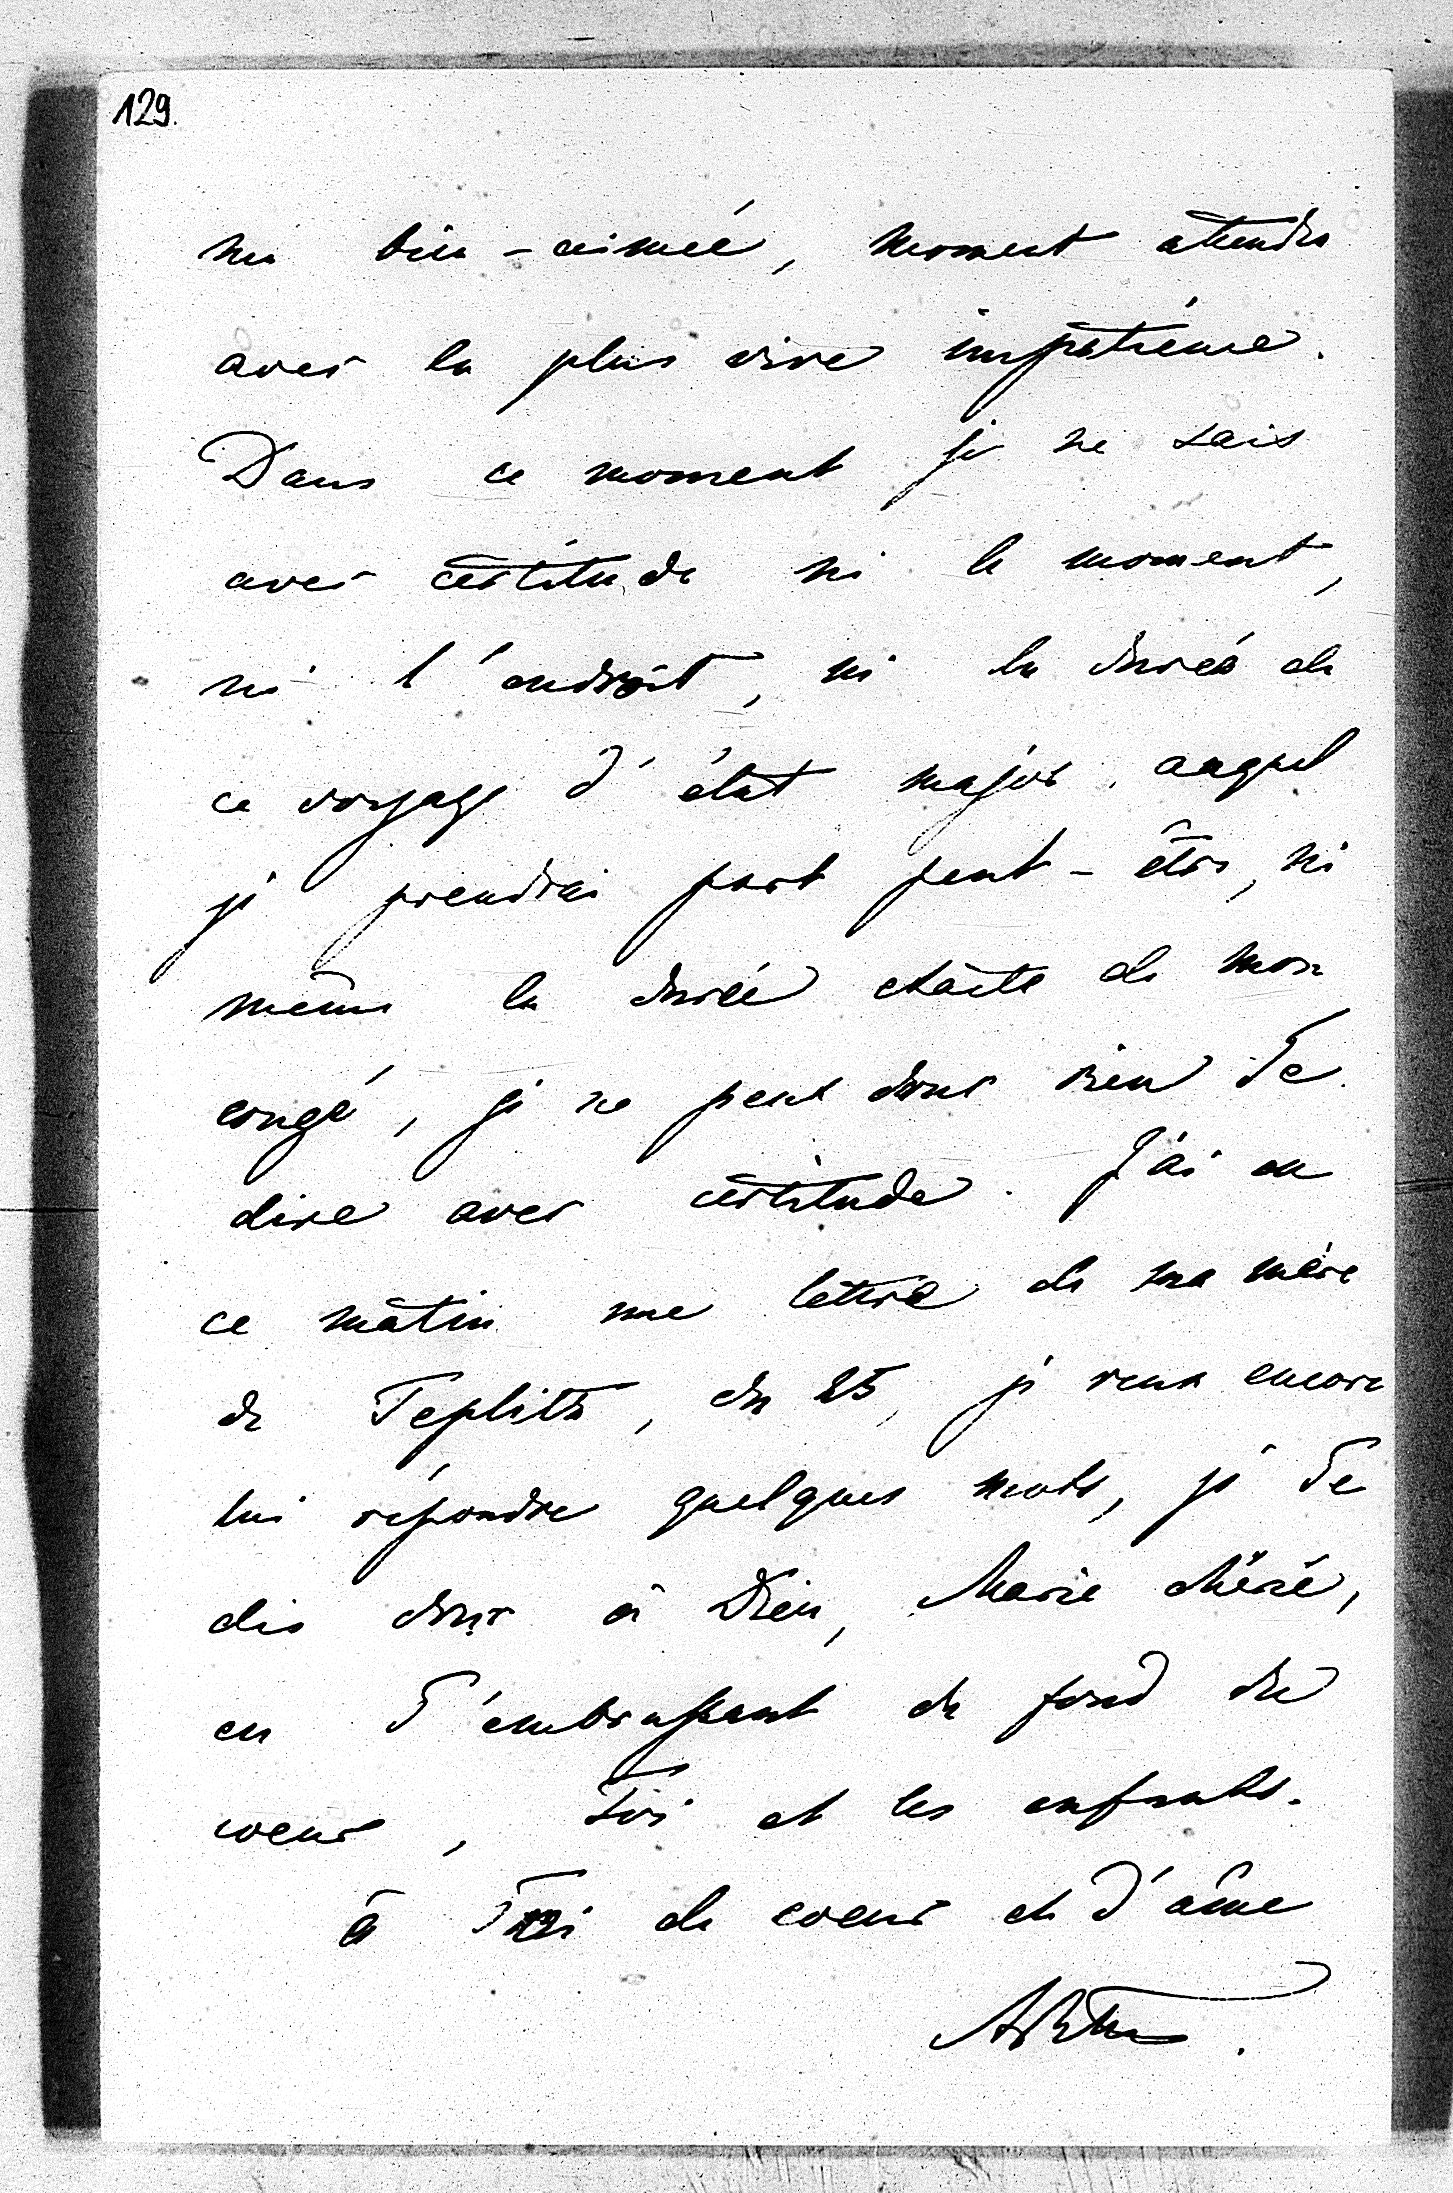 129.
ma bien-aimée, moment attendu
avec la plus vive impatience.
Dans ce moment je ne sais
avec certitude ni le moment,
ni l'endroit, ni la durée de
ce voyage d'état major auquel
je prendrai part peut-être, ni
même la durée exacte de mon
congé, je ne peux donc rien Te
dire avec certitude. J'ai eu
ce matin une lettre de ma mère
de Teplitz, du 25, je veux encore
lui répondre quelques mots, je Te
dis donc à Dieu, Marie chérie,
en T'embrassant du fond du
coeur, Toi et les enfants.
à Toi de coeur et d'âme
Arthur.